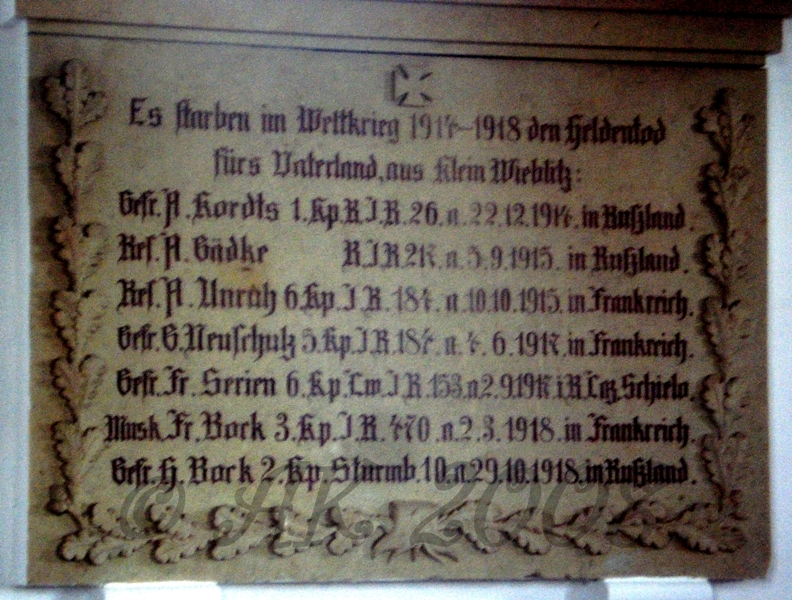 Es starben im Weltkrieg 1914–1918 den Heldentod
fürs Vaterland, aus Klein Wieblitz:
Gefr. A. Kordts 1. Kp. R. I. R. 26. a. 22.12.1914. in Rußland.
Res. A. Gädke R. I. R. 217. a. 5.9.1915. in Rußland.
Res. A. Unrath 6. Kp. I. R. 184. a. 10.10.1915. in Frankreich.
Gefr. G. Neuschulz 5. Kp. I. R. 184. a. 4. 6. 1917. in Frankreich.
Gefr. Fr. Serien 6. Kp. Lw. I. R. 153. a 2.9.1917 i. R. Laz. Schielo.
Musk. Fr. Bock 3. Kp. I. R. 470. a. 2. 3. 1918. in Frankreich.
Gefr. H. Bock 2. Kp. Sturmb. 10. a. 29.10.1918. in Rußland.
© AK. 2008